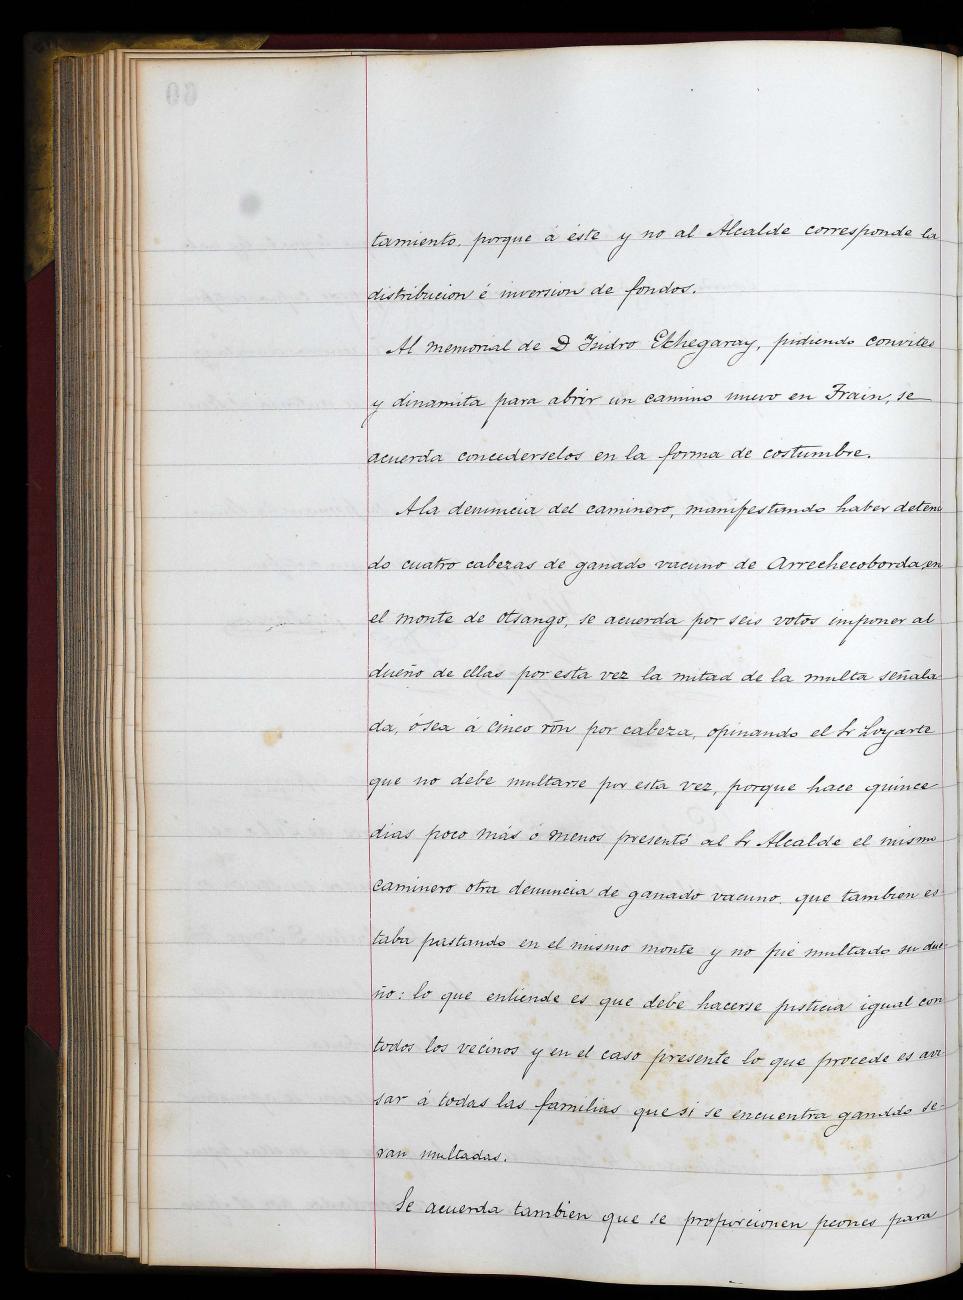 tamiento, porque á éste y no al Alcalde corresponde la
distribucion é inversion de fondos.
Al memorial de D Isidro Etchegaray, pidiendo convites
y dinamita para abrir un camino nuevo en Frain, se
acuerda concederselos en la forma de costumbre.
A la denuncia del caminero, manifestando haber deteni
do cuatro cabezas de ganado vacuno de Arrechecoborda, en
el monte de Otsango, se acuerda por seis votos imponer al
dueño de ellas por esta vez la mitad de la multa señala
da, ósea á cinco rōn por cabeza, opinando el Sr Loyarte
que no debe multarse por esta vez, porque hace quince
dias poco más ó menos presentó al Sr Alcalde el mismo
caminero otra denuncia de ganado vacuno, que tambien es
taba pastando en el mismo monte y no fué multado su due-
ño: lo que entiende es que debe hacerse justicia igual con
todos los vecinos y en el caso presente lo que procede es avi-
sar á todas las familias que si se encuentra ganado se-
ran multadas.
Se acuerda tambien que se proporcionen peones para